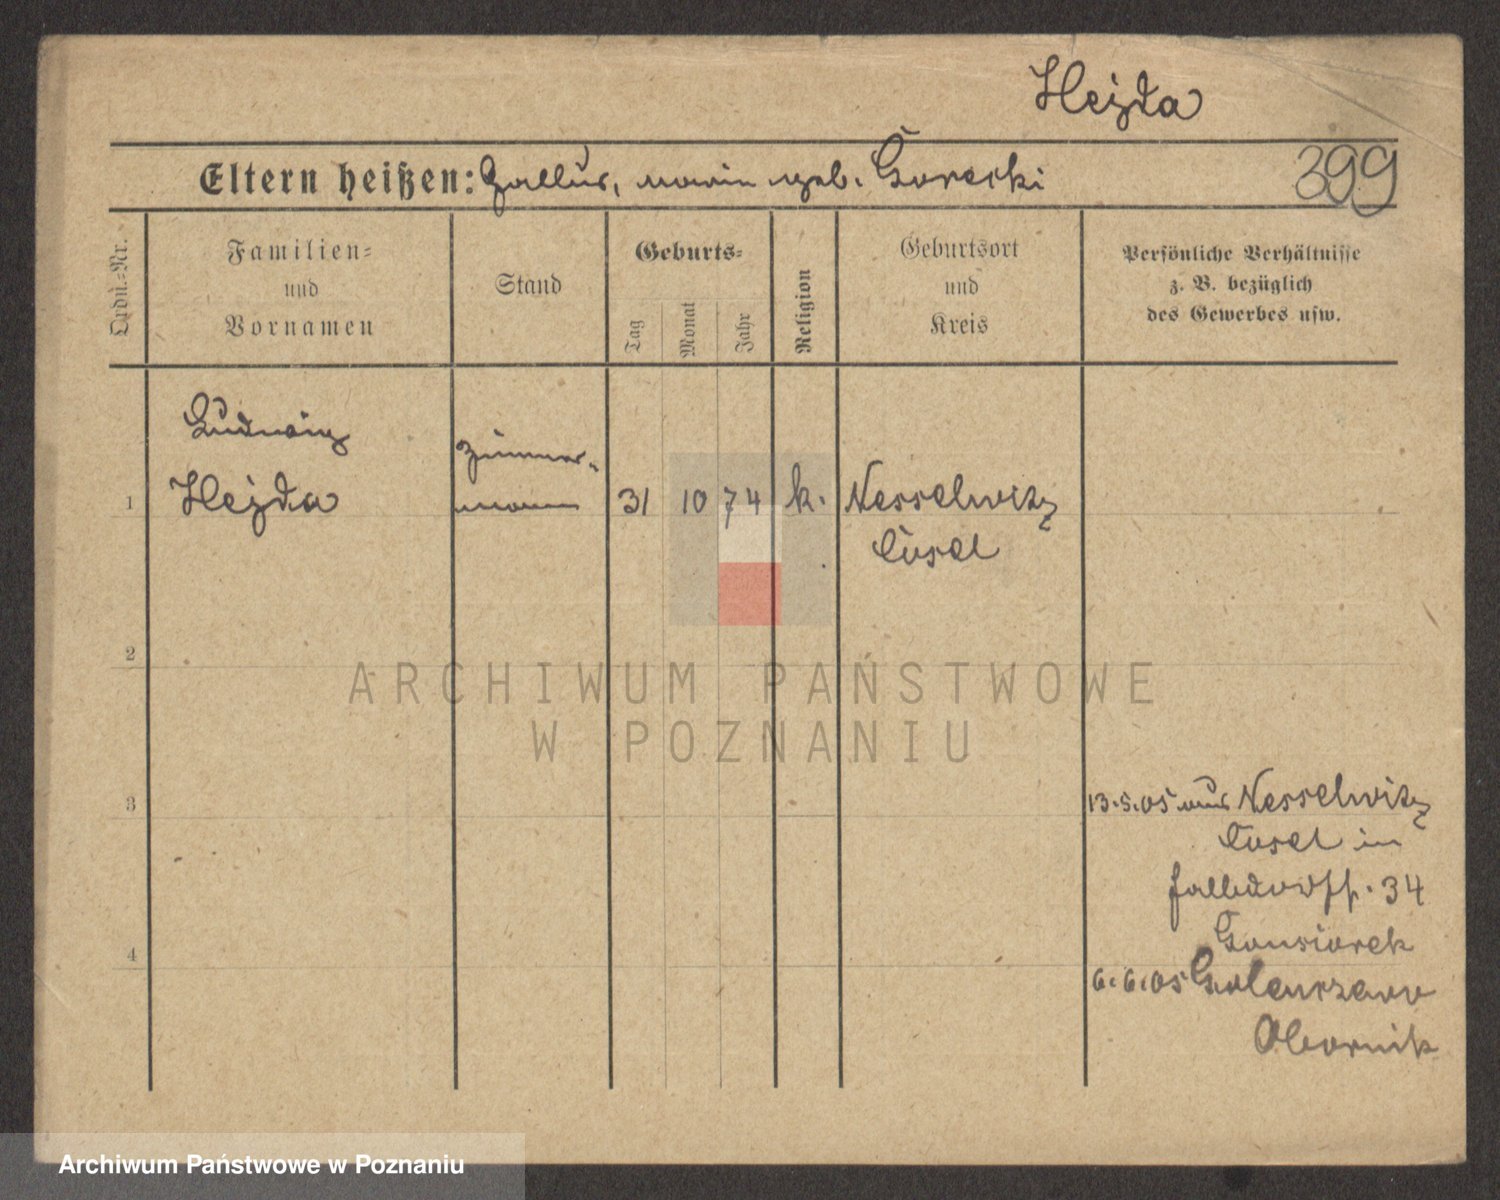 Hejda
Eltern heißen: Gallus, Marie geb. Gorecki
399
Ordn.-Nr.
Familien-
und
Vornamen
Stand
Geburts-
Tag
Monat
Jahr
Religion
Geburtsort
und
Kreis
Persönliche Verhältnisse
z. B. bezüglich
des Gewerbes usw.
Ludwig
Zimmer-
1 Hejda mann 31 10 74 k. Nesselwitz
Cosel
2
ARCHIWUM PAŃSTWOWE
W POZNANIU
3 13.5.05 aus Nesselwitz
Cosel in
34
4 Gonsiorek
6.6.05
Obornik
Archiwum Państwowe w Poznaniu